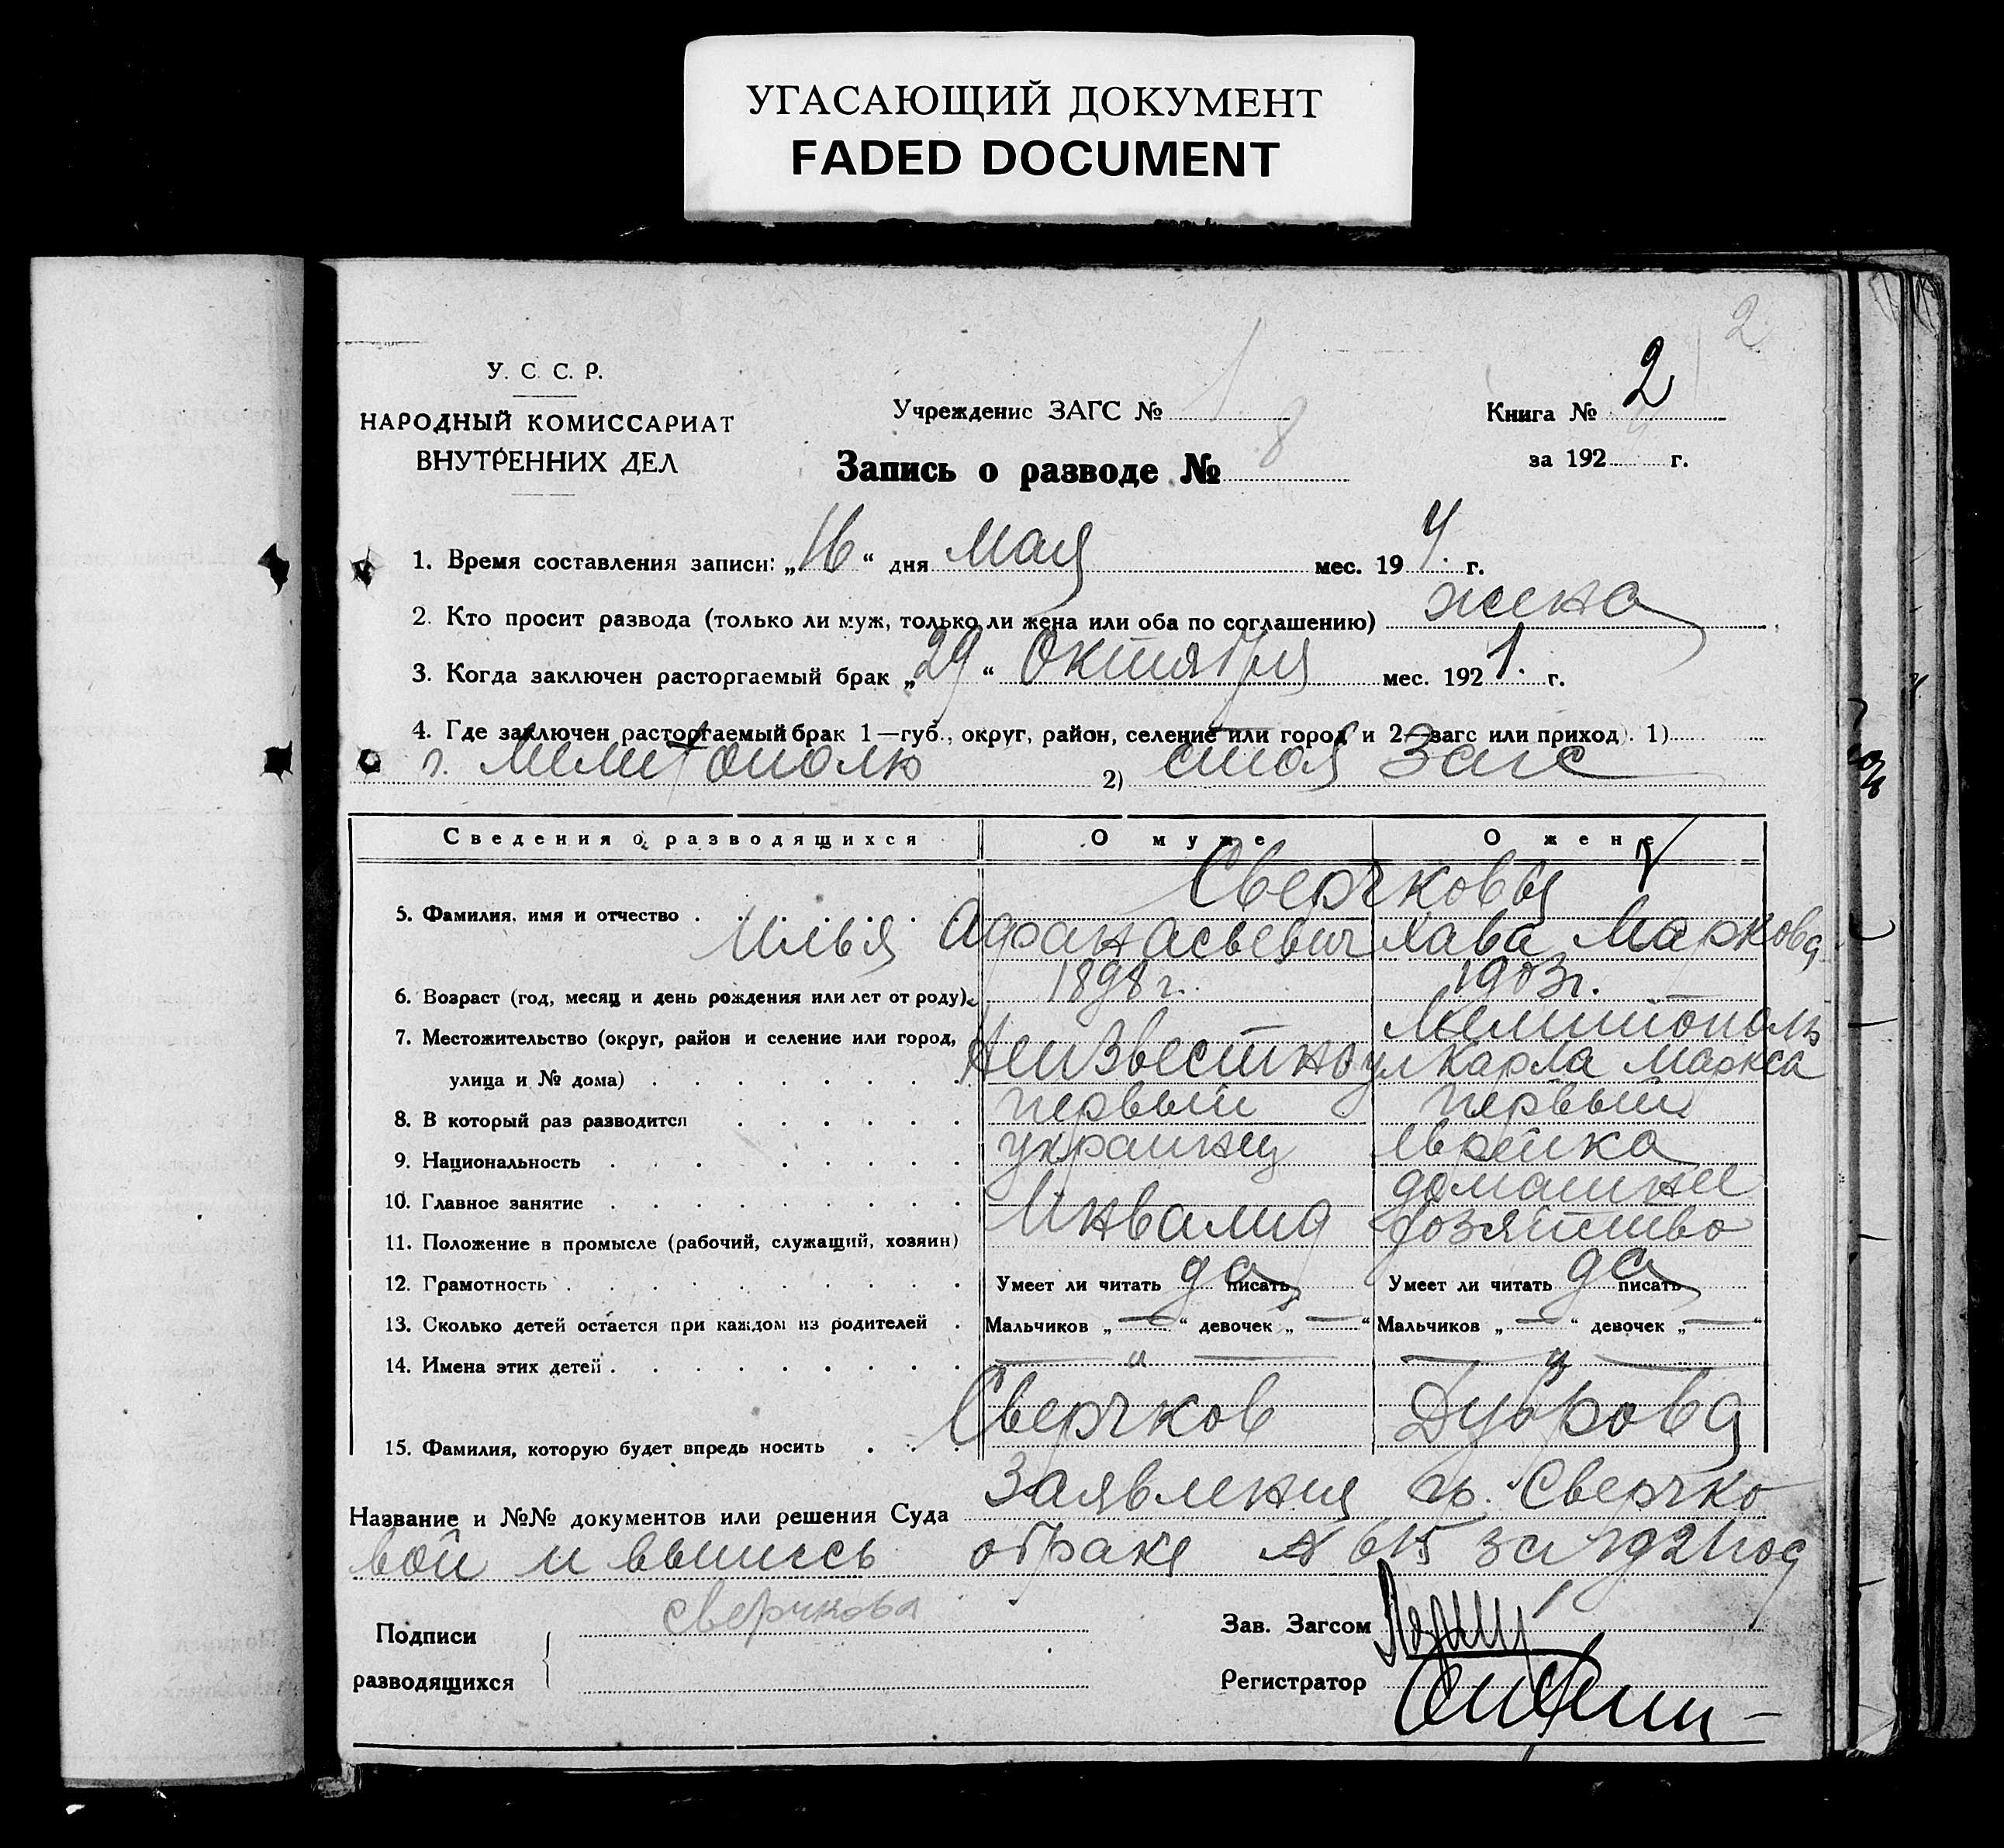 УГАСАЮЩИЙ ДОКУМЕНТ
FADED DOCUMENT
2
У. С. С. Р.
НАРОДНЫЙ КОМИССАРИАТ
ВНУТРЕННИХ ДЕЛ
Учреждение ЗАГС № 1
Книга № 2
за 192 г.
Запись о разводе № 8
1. Время составления записи: „16“ дня Мая мес. 19 4. г.
2. Кто просит развода (только ли муж, только ли жена или оба по соглашению) жена
3. Когда заключен расторгаемый брак „29“ Октября мес. 1921. г.
4. Где заключен расторгаемый брак 1—губ., округ, район, селение или город и 2—загс или приход). 1)
г. Мелитополю 2) стол Загс
Сведения о разводящихся О муже О жене
Сверчковы
5. Фамилия, имя и отчество Илья Афанасьевич Хава Маркова
6. Возраст (год, месяц и день рождения или лет от роду) 1898 г. 1903 г.
7. Местожительство (округ, район и селение или город, Мелитополь
улица и № дома) Неизвестно ул Карла Маркса
8. В который раз разводится первый первый
9. Национальность украинец еврейка
10. Главное занятие Инвалид домашнее
11. Положение в промысле (рабочий, служащий, хозяин) хозяйство
12. Грамотность Умеет ли читать да писать Умеет ли читать да писать
13. Сколько детей остается при каждом из родителей Мальчиков „—“ девочек „—“ Мальчиков „—“ девочек „—“
14. Имена этих детей — „ — — „ —
15. Фамилия, которую будет впредь носить Сверчков Дуброва
Название и №№ документов или решения Суда Заявления гр. Сверчко
вой и выпись о браке № 615 за 1921 год
Подписи Сверчкова
разводящихся
Зав. Загсом
Регистратор